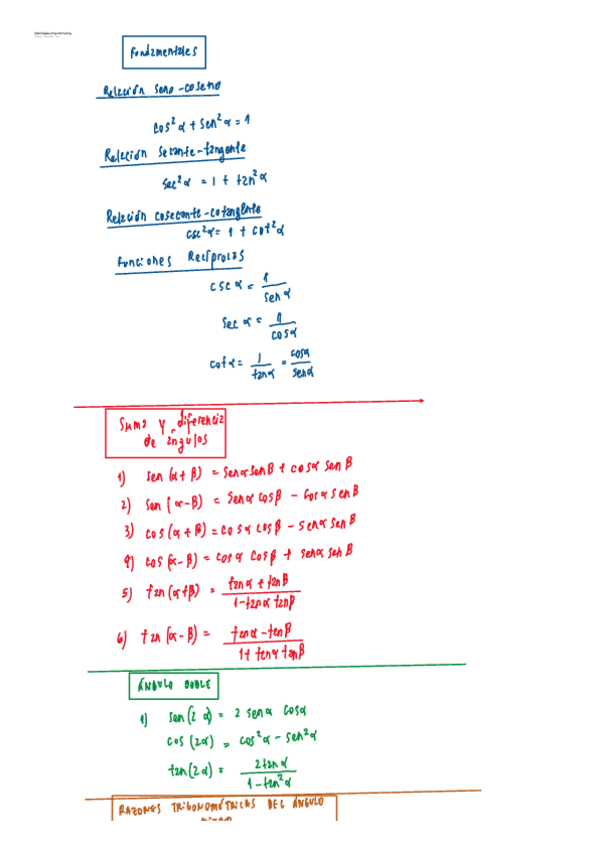 Fundamentales
Relación seno-coseno
cos²α + sen²α = 1
Relación secante-tangente
sec²α = 1 + tan²α
Relación cosecante-cotangente
csc²α = 1 + cot²α
Funciones Recíprocas
csc α = 1/sen α
sec α = 1/cos α
cot α = 1/tan α = cos α/sen α
Suma y diferencia
de ángulos
1) sen (α + β) = sen α sen β + cos α sen β
2) sen (α - β) = sen α cos β - cos α sen β
3) cos (α + β) = cos α cos β - sen α sen β
4) cos (α - β) = cos α cos β + sen α sen β
5) tan (α + β) = tan α + tan β / 1 - tan α tan β
6) tan (α - β) = tan α - tan β / 1 + tan α tan β
ÁNGULO DOBLE
1) sen (2 α) = 2 sen α cos α
cos (2α) = cos²α - sen²α
tan (2α) = 2 tan α / 1 - tan²α
RAZONES TRIGONOMÉTRICAS DEL ÁNGULO